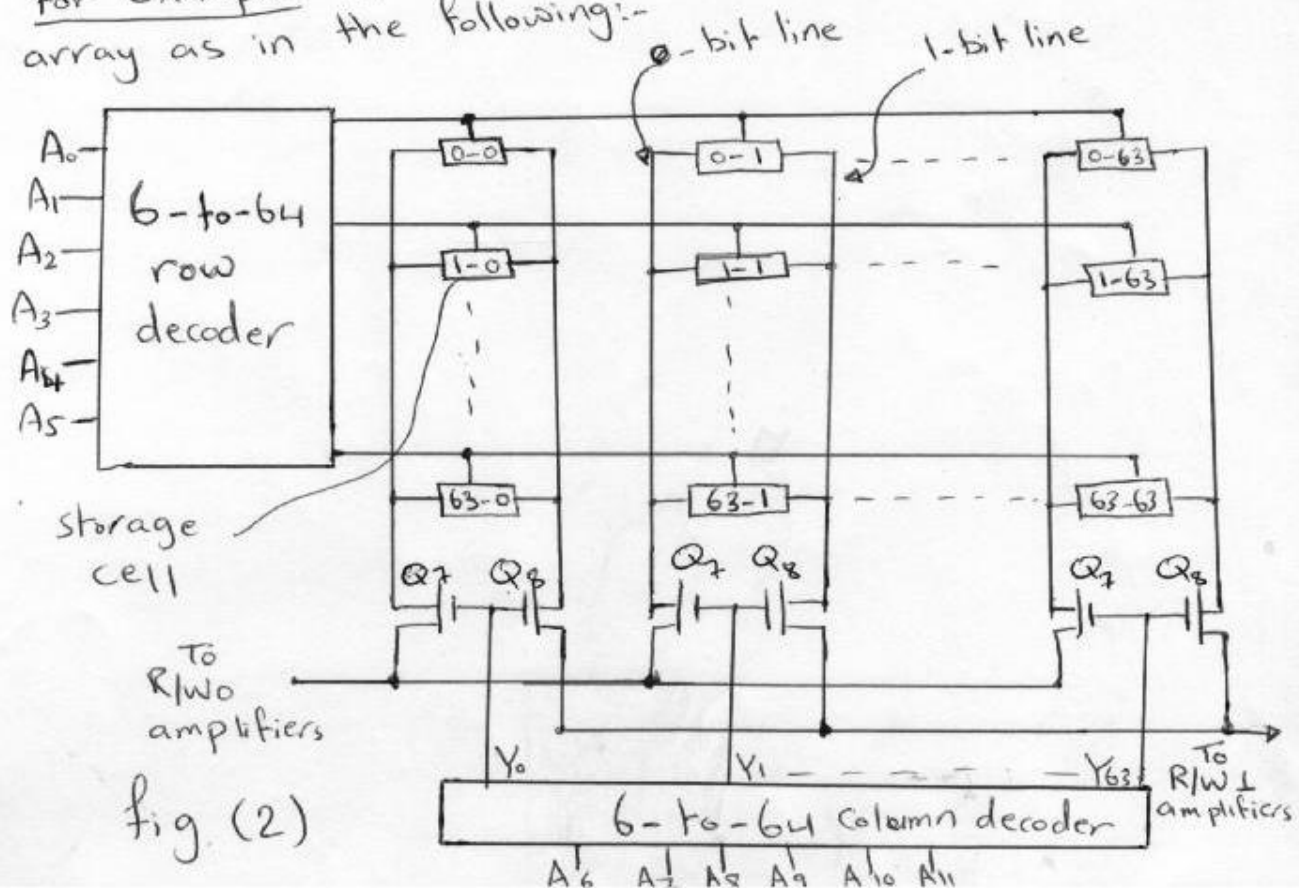 array as in the following:-
0-bit line
1-bit line
A0
A1
A2
A3
A4
A5
6-to-64
row
decoder
0-0
0-1
0-63
1-0
1-1
1-63
63-0
63-1
63-63
storage
cell
Q7 Q8
Q7 Q8
Q7 Q8
To
R/W0
amplifiers
Y0
Y1
Y63
To
R/W1
amplifiers
fig (2)
6-to-64 column decoder
A6 A7 A8 A9 A10 A11